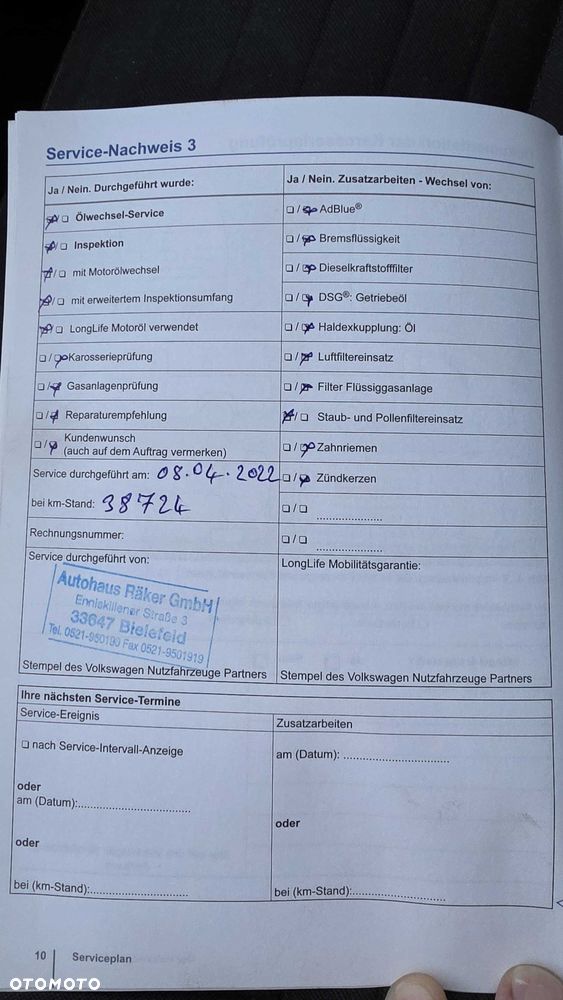 Service-Nachweis 3
Ja / Nein. Durchgeführt wurde:
Ölwechsel-Service
Inspektion
mit Motorölwechsel
mit erweitertem Inspektionsumfang
LongLife Motoröl verwendet
Karosserieprüfung
Gasanlagenprüfung
Reparaturempfehlung
Kundenwunsch
(auch auf dem Auftrag vermerken)
Service durchgeführt am: 08.04.2022
bei km-Stand: 38724
Rechnungsnummer:
Service durchgeführt von:
Autohaus Räker GmbH
Enniskillener Straße 3
33647 Bielefeld
Tel. 0521-950190 Fax 0521-9501919
Stempel des Volkswagen Nutzfahrzeuge Partners
Ja / Nein. Zusatzarbeiten - Wechsel von:
AdBlue®
Bremsflüssigkeit
Dieselkraftstofffilter
DSG®: Getriebeöl
Haldexkupplung: Öl
Luftfiltereinsatz
Filter Flüssiggasanlage
Staub- und Pollenfiltereinsatz
Zahnriemen
Zündkerzen
LongLife Mobilitätsgarantie:
Stempel des Volkswagen Nutzfahrzeuge Partners
Ihre nächsten Service-Termine
Service-Ereignis
nach Service-Intervall-Anzeige
oder
am (Datum):
oder
bei (km-Stand):
Zusatzarbeiten
am (Datum):
oder
bei (km-Stand):
10 Serviceplan
OTOMOTO